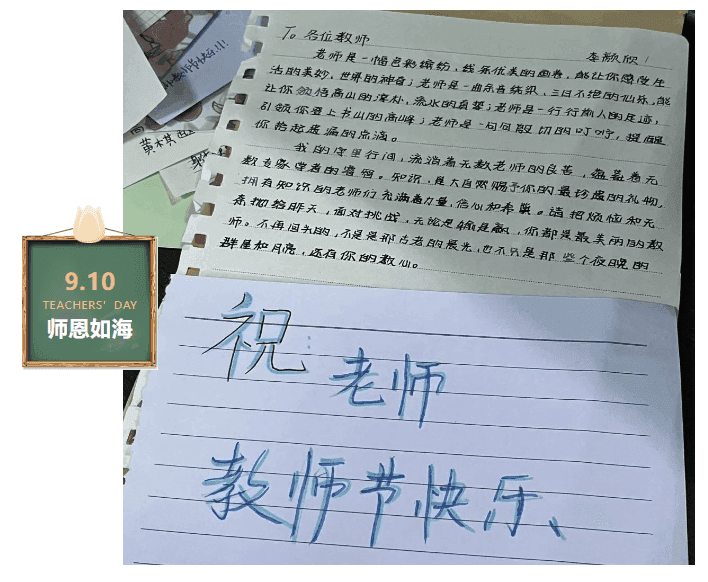 To 各位教师
李颖欣
老师是一幅色彩缤纷、线条优美的画卷,能让你感受生
活的美妙,世界的神奇;老师是一曲余音绕梁、三日不绝的仙乐,能
让你领悟高山的深处,流水的真挚;老师是一行行前人的足迹,
引领你登上书山的高峰;老师是一句句殷切的叮咛,提醒
你拾起遗漏的点滴。
我的字里行间,流淌着无数老师的良善,蕴藏着无
数专家学者的睿智。知识,是大自然赐予你的最珍惜的礼物,
拥有知识的老师们充满着力量、信心和希冀。请把烦恼和无
奈抛给昨天,面对挑战,无论是输是赢,你都是最美丽的教
师。不再回头的,不只是那古老的晨光,也不只是那些个夜晚的
群星和月亮,还有你的教心。
黄木棋
祝:
老师
教师节快乐、
9.10
TEACHERS' DAY
师恩如海